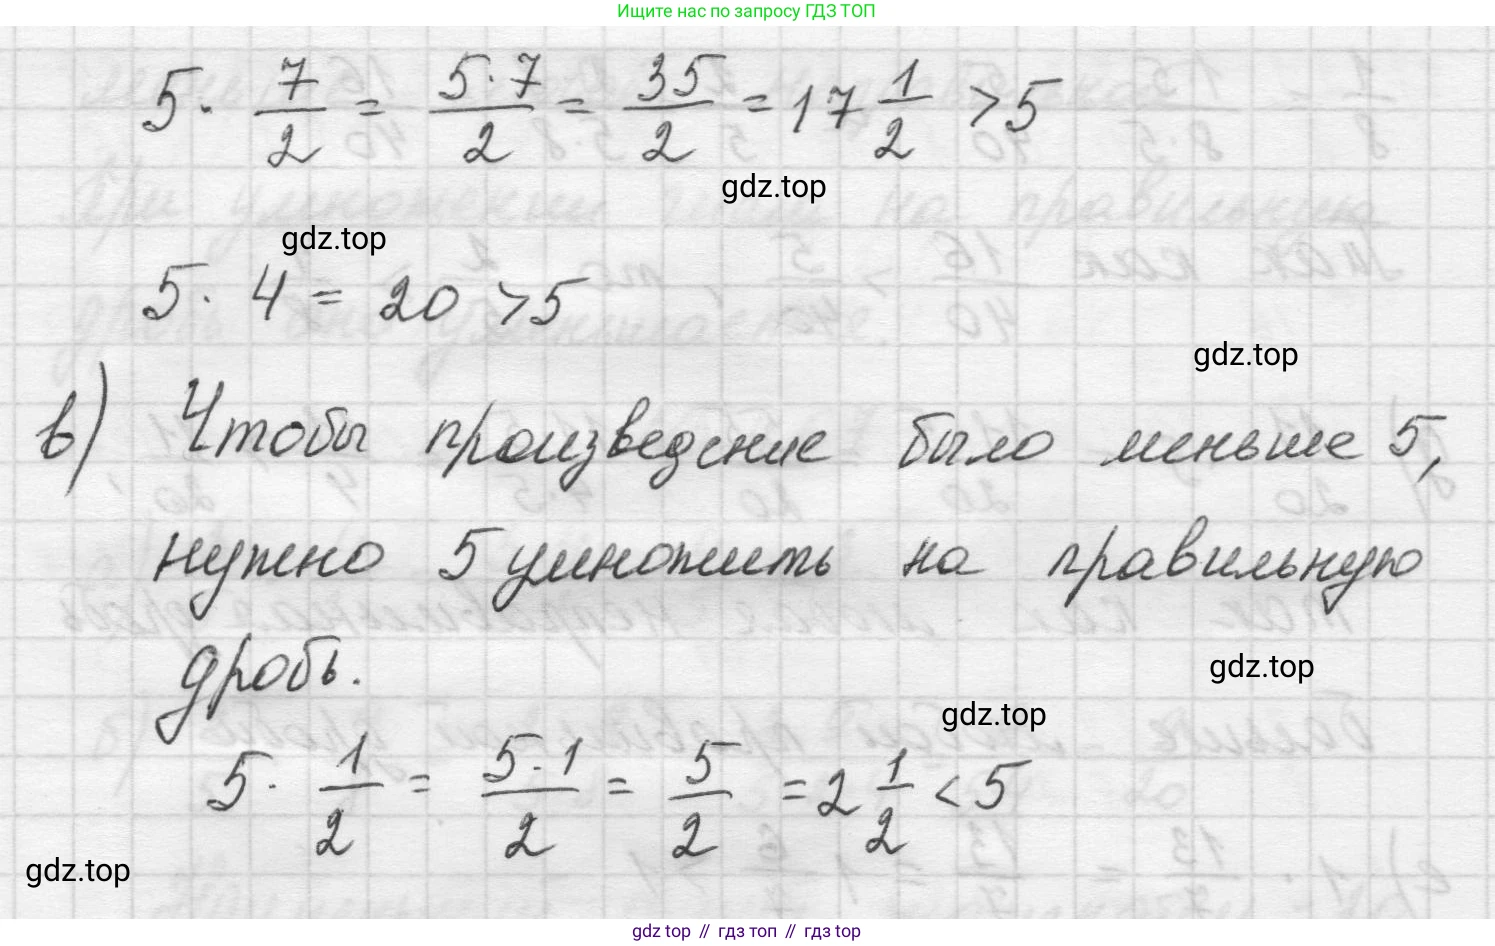 Ищите нас по запросу ГДЗ ТОП
5 · 7/2 = 5·7/2 = 35/2 = 17 1/2 > 5
gdz.top
gdz.top
5 · 4 = 20 > 5
gdz.top
в) Чтобы произведение было меньше 5,
нужно 5 умножить на правильную
дробь.
gdz.top
gdz.top
5 · 1/2 = 5·1/2 = 5/2 = 2 1/2 < 5
gdz.top
gdz top // гдз топ // гдз top